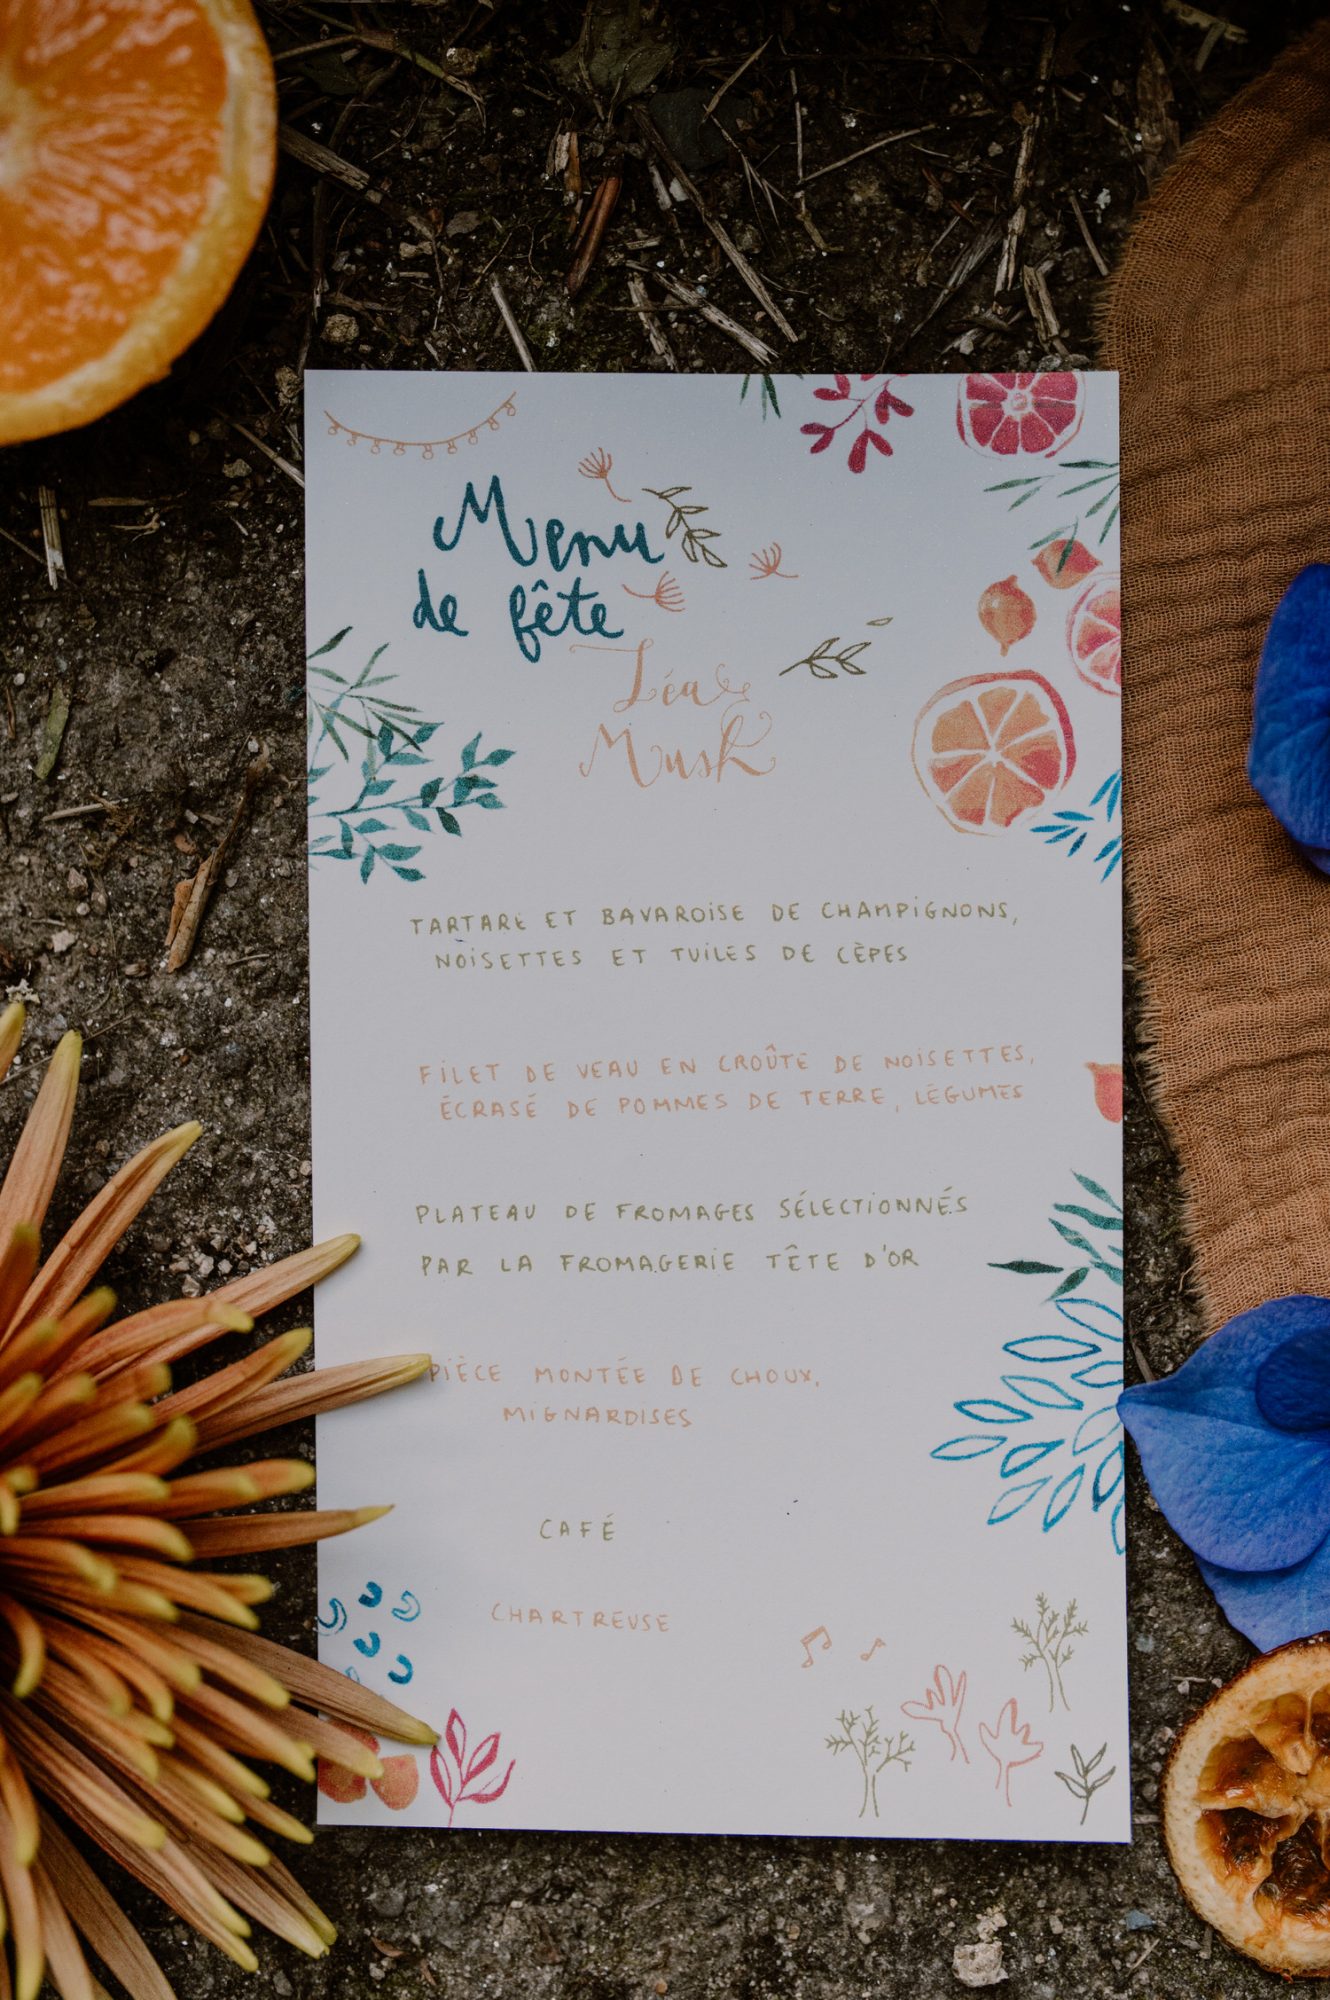 Menu
de fête
Léa
Mush
TARTARE ET BAVAROISE DE CHAMPIGNONS,
NOISETTES ET TUILES DE CÈPES
FILET DE VEAU EN CROÛTE DE NOISETTES,
ÉCRASÉ DE POMMES DE TERRE, LÉGUMES
PLATEAU DE FROMAGES SÉLECTIONNÉS
PAR LA FROMAGERIE TÊTE D'OR
PIÈCE MONTÉE DE CHOUX,
MIGNARDISES
CAFÉ
CHARTREUSE